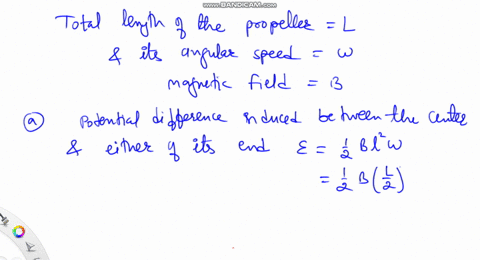 WWW.BANDICAM.COM
Total length of the propeller = L
& its angular speed = ω
magnetic field = B
(a) Potential difference induced between the center
& either of its end ε = 1/2 Bl²ω
= 1/2 B(L/2)